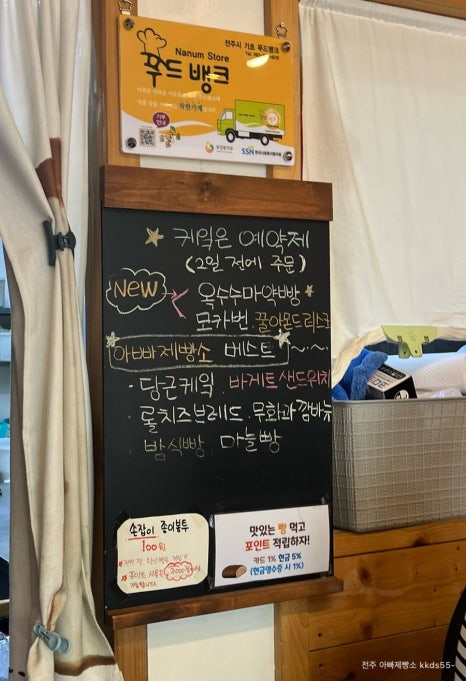 전주시 기초 푸드뱅크
Nanum Store
푸드 뱅크
착한가게
기부
안내
보건복지부
SSN 한국사회복지협의회
케익은 예약제
(2일 전에 주문)
NEW
옥수수마약빵
모카번 꿀아몬드러스크
아빠제빵소 베스트 ~~
· 당근케익. 바게트샌드위치
· 롤치즈브레드. 무화과깜빠뉴
· 밤식빵. 마늘빵
손잡이 종이봉투
100원
맛있는 빵 먹고
포인트 적립하자!
카드 1% 현금 5%
(현금영수증 시 1%)
전주 아빠제빵소 kkds55-